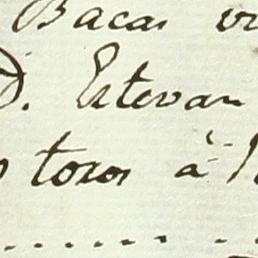 Bacas
D. Estevan
toros à